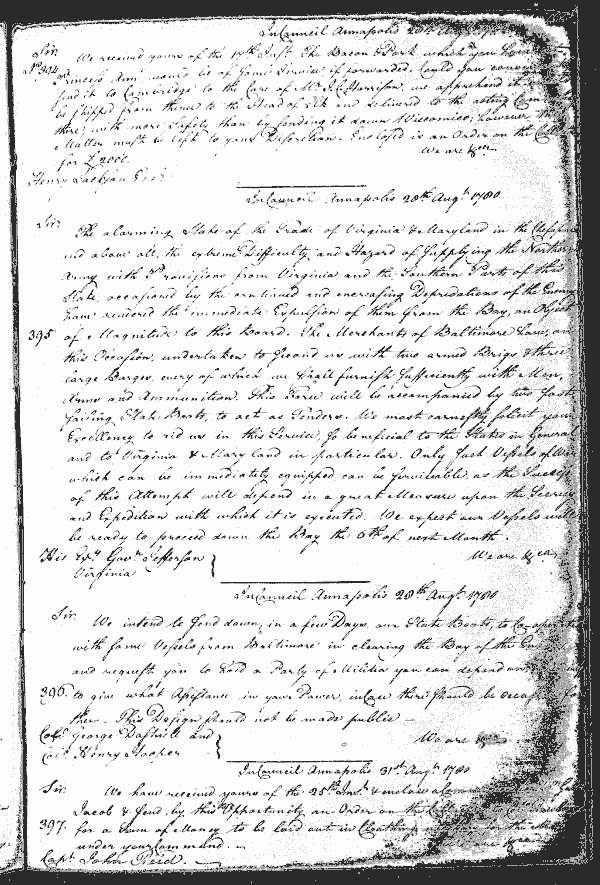 In Council Annapolis 28th Augt. 1780
Sir
No 394 We received yours of the 17th Inst. The Bacon & Pork which you
Princess Ann would be of some Service if forwarded. Could you
send it to Cambridge to the Care of Mr. Harrison, we apprehend it
be shipped from thence to the Head of Elk and delivered to the acting Com
there, with more Safety than by sending it down Wicomico; however the
Matter must be left to your Discretion. Enclosed is an Order on the
for £2000. We are &ca
Henry Jackson Esqr.
In Council Annapolis 28th Augt. 1780
Sir
The alarming State of the Trade of Virginia & Maryland in the Chesapeake
and above all, the extreme Difficulty and Hazard of supplying the Northern
Army with Provisions from Virginia and the Southern Parts of this
State, occasioned by the continued and encreasing Depredations of the Enemy
have rendered the immediate Expulsion of them from the Bay, an Object
395 of Magnitude to this Board. The Merchants of Baltimore have, on
this Occasion, undertaken to second us with two armed Brigs & three
large Barges, every of which, we shall furnish sufficiently with Men,
Arms and Ammunition. This Force will be accompanied by two fast
sailing State Boats, to act as Tenders. We most earnestly solicit your
Excellency to aid us in this Service, so beneficial to the States in General
and to Virginia & Maryland in particular. Only such Vessels of War
which can be immediately equipped can be serviceable, as the Success
of this Attempt will depend in a great Measure upon the Secrecy
and Expedition with which it is executed. We expect our Vessels will
be ready to proceed down the Bay the 6th of next Month.
His Exy. Govr. Jefferson We are &ca
Virginia
In Council Annapolis 28th Augt. 1780
Sir.
We intend to send down, in a few Days, our State Boats, to
with some Vessels from Baltimore in clearing the Bay of the
and request you to hold a Party of Militia you can depend
396. to give what Assistance, in your Power, in Case there should be for
them. This Design should not be made public
Colo. George Dashiell and We are &ca
Colo. Henry Hooper
In Council Annapolis 31st Augt. 1780
Sir.
We have received yours of the 25th Inst. & enclose
Jacob & send, by this Opportunity an Order on the
397. for a Sum of Money to be laid out in Cloathing
under your Command.
Capt. John Reed.